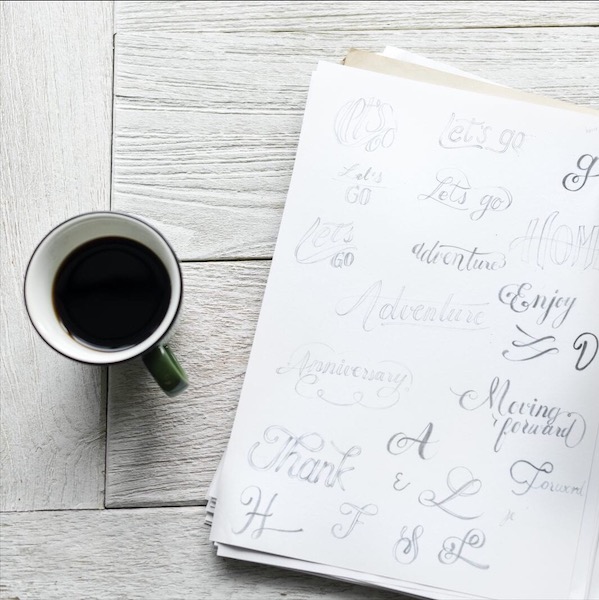 Let's go
Let's go
g
Let's
GO
Lets go
Let's
GO
adventure
HOME
Adventure
Enjoy
D
Anniversary
Moving
forward
Thank
A
Forward
E
L
H
F
&
L